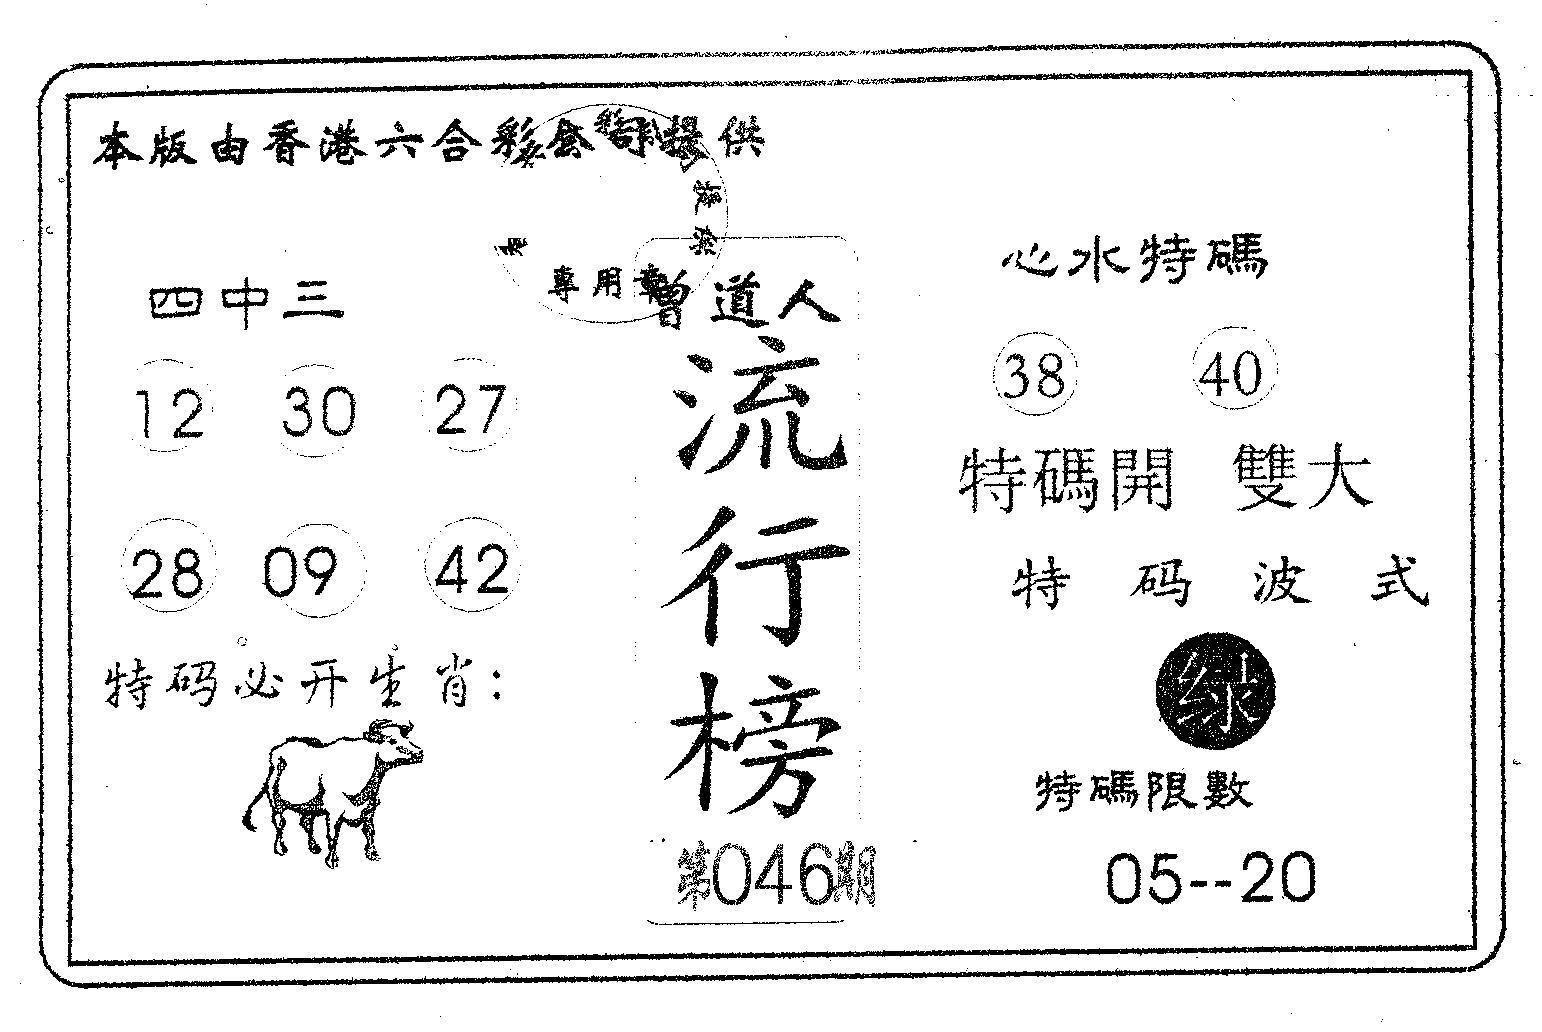 本版由香港六合彩公司提供
專用章
四中三
12 30 27
28 09 42
特码必开生肖:
曾道人
流行榜
第046期
心水特碼
38 40
特碼開 雙大
特码波式
绿
特碼限數
05--20